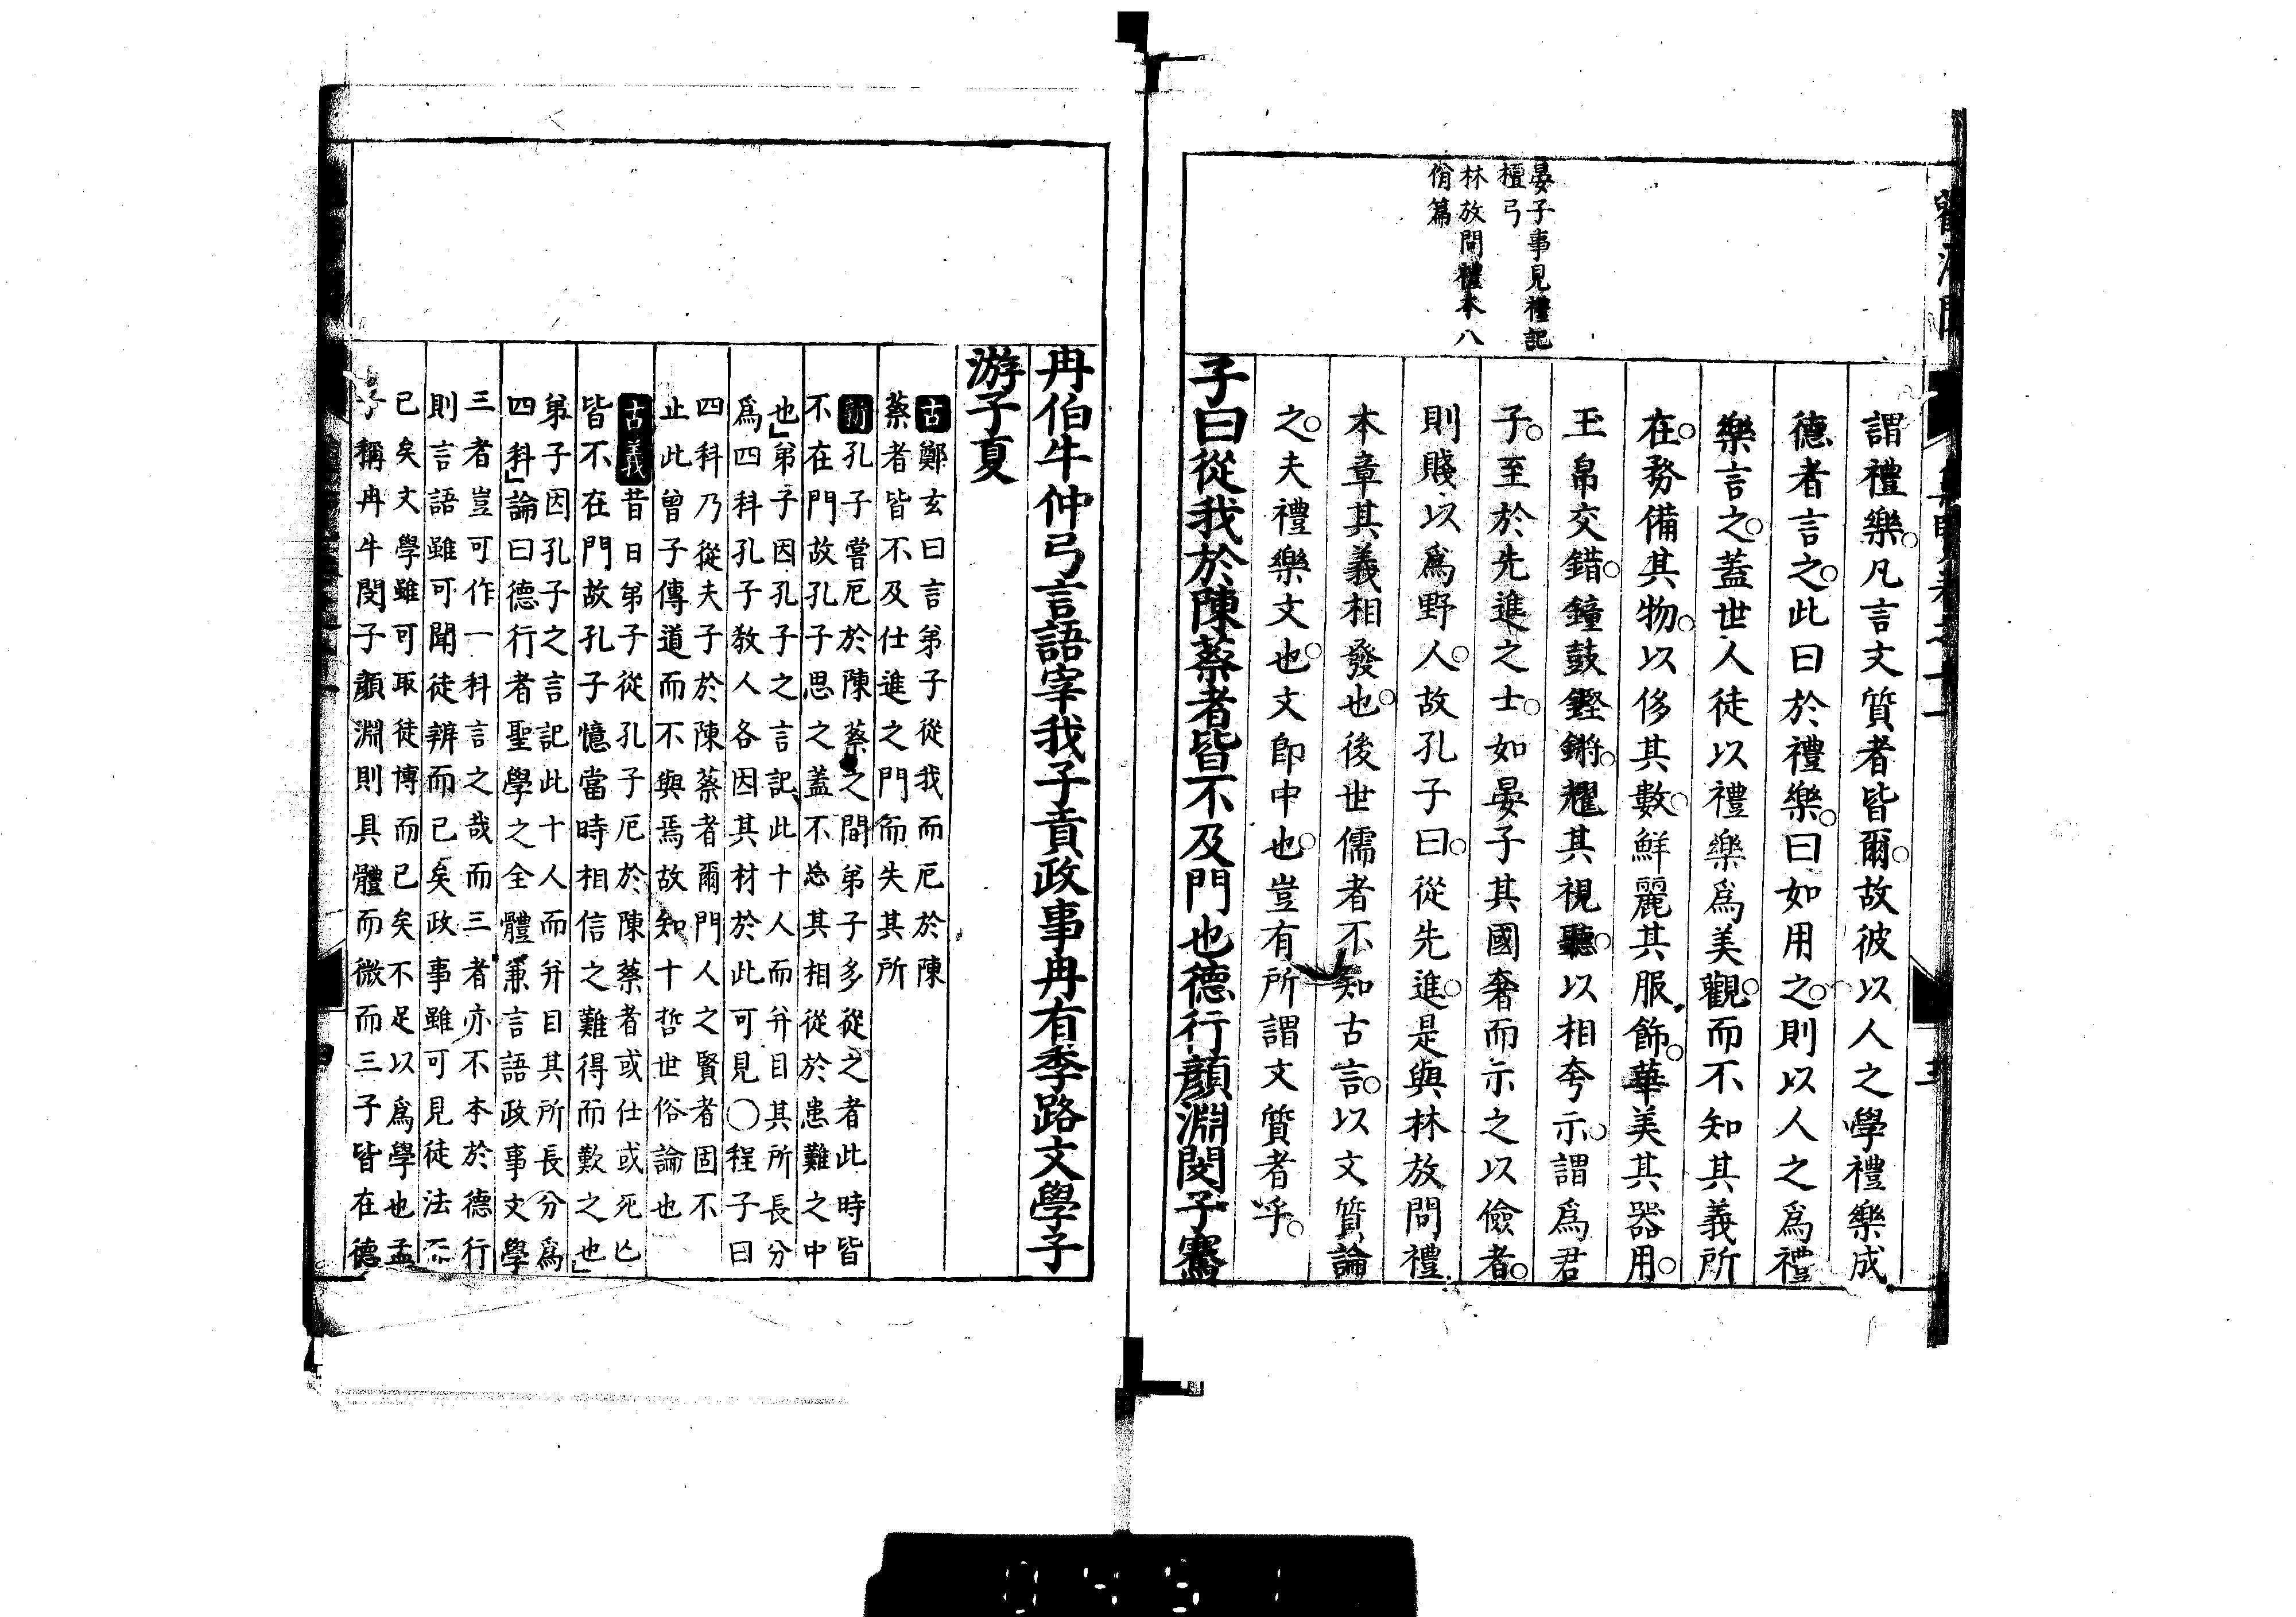 晏子事見禮記
檀弓
林放問禮本八
佾篇
謂禮樂。凡言文質者皆爾。故彼以人之學禮樂成
德者言之。此曰於禮樂。曰如用之。則以人之爲禮
樂言之。蓋世人徒以禮樂爲美觀。而不知其義所
在。務備其物。以侈其數。鮮麗其服飾。華美其器用。
玉帛交錯。鐘鼓鏗鏘。耀其視聽。以相夸示。謂爲君
子。至於先進之士。如晏子其國奢而示之以儉者。
則賤以爲野人。故孔子曰。從先進。是與林放問禮
本章其義相發也。後世儒者不知古言。以文質論
之。夫禮樂文也。文即中也。豈有所謂文質者乎。
子曰從我於陳蔡者皆不及門也德行顔淵閔子騫
冉伯牛仲弓言語宰我子貢政事冉有季路文學子
游子夏
古鄭玄曰言弟子從我而厄於陳
蔡者皆不及仕進之門而失其所
新孔子嘗厄於陳蔡之間弟子多從之者此時皆
不在門故孔子思之蓋不忘其相從於患難之中
也」弟子因孔子之言記此十人而并目其所長分
爲四科孔子教人各因其材於此可見○程子曰
四科乃從夫子於陳蔡者爾門人之賢者固不
止此曾子傳道而不與焉故知十哲世俗論也
古義昔日弟子從孔子厄於陳蔡者或仕或死亡
皆不在門故孔子憶當時相信之難得而歎之也」
弟子因孔子之言記此十人而并目其所長分爲
四科」論曰德行者聖學之全體兼言語政事文學
三者豈可作一科言之哉而三者亦不本於德行
則言語雖可聞徒辨而已矣政事雖可見徒法而
已矣文學雖可取徒博而已矣不足以爲學也孟
子稱冉牛閔子顔淵則具體而微而三子皆在德